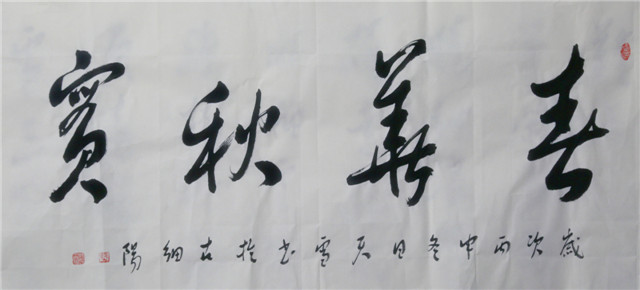 春華秋實
歲次丙申冬日天雪書於古細陽